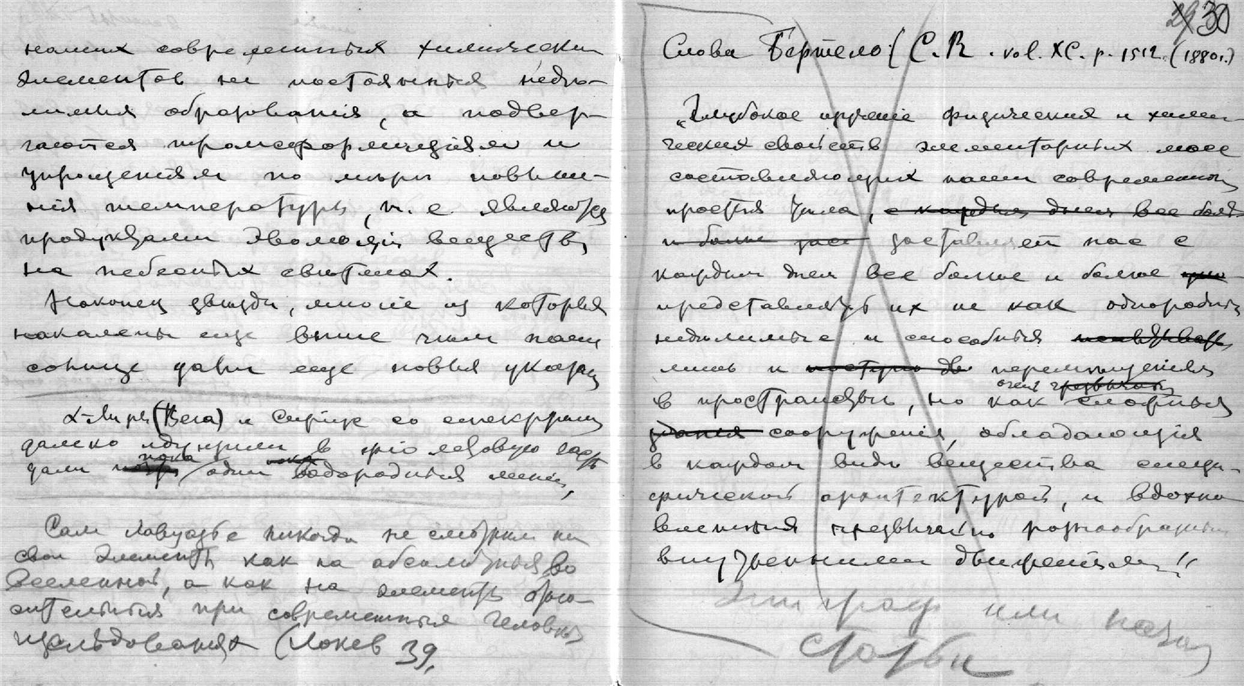 наших современных химических
элементов не постоянныя неды-
лимыя образования, а подвер-
гаются трансформациям и
упрощениям по мѣрѣ повыше-
нія температуры, т. е. являются
продуктами эволюціи веществъ
на небесных светилах.
Наконец звѣзды, многіе из которых
накалены еще выше чѣм наше
солнце дали еще новыя указан
α-Лиры (Вега) и Сиріус со спектрами
далеко идущими в фіолетовую часть
дали пока одни водородныя линіи,
Сам Лавуазье никогда не смотрѣл на
свои элементы как на абсолютныя во
Вселенной, а как на элементы
при современных
изслѣдованія (Локьер 39,
30
Слова Бертело (C. R. vol. XC. p. 1512. (1880г.)
„Глубокое изученіе физических и хими-
ческих свойств элементарных масс
составляющих наши современные
простыя тѣла, с каждым днем все более
и более доставляет нас с
каждым днем все болѣе и болѣе
представлять их не как однородные
недѣлимые и способныя
лишь к перемѣщеніям
очень чрезвычайно
в пространствѣ, но как сложныя
зданія сооруженія, обладающія
в каждом видѣ вещества специ-
фической архитектурой, и вдохно
вленныя чрезвычайно разнообразными
внутренними движеніями"
Эпиграф или назад
статьи